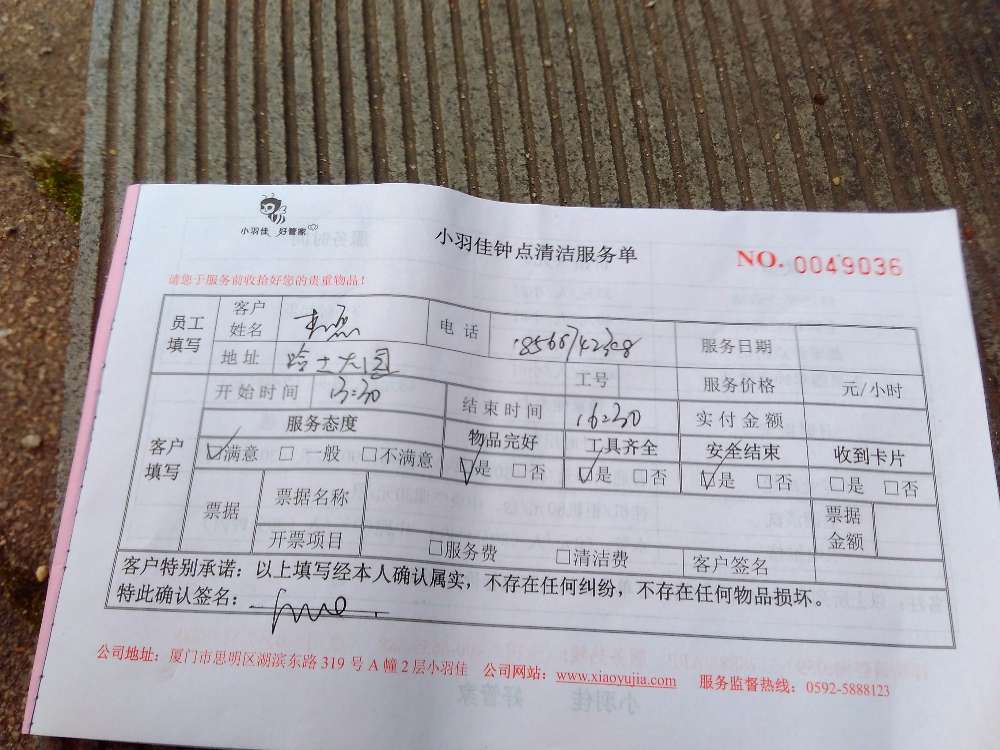 小羽佳 好管家
小羽佳钟点清洁服务单
NO. 0049036
请您于服务前收拾好您的贵重物品！
员工填写 客户姓名 电 话 服务日期
地址 工号 服务价格 元/小时
客户填写 开始时间 13:30 结束时间 16:30 实付金额
服务态度 物品完好 工具齐全 安全结束 收到卡片
☑满意 □ 一般 □不满意 ☑是 □否 ☑是 □否 ☑是 □否 □是 □否
票据 票据名称 票据金额
开票项目 □服务费 □清洁费 客户签名
客户特别承诺：以上填写经本人确认属实，不存在任何纠纷，不存在任何物品损坏。
特此确认签名：
公司地址：厦门市思明区湖滨东路 319 号 A 幢 2 层小羽佳 公司网站：www.xiaoyujia.com 服务监督热线：0592-5888123